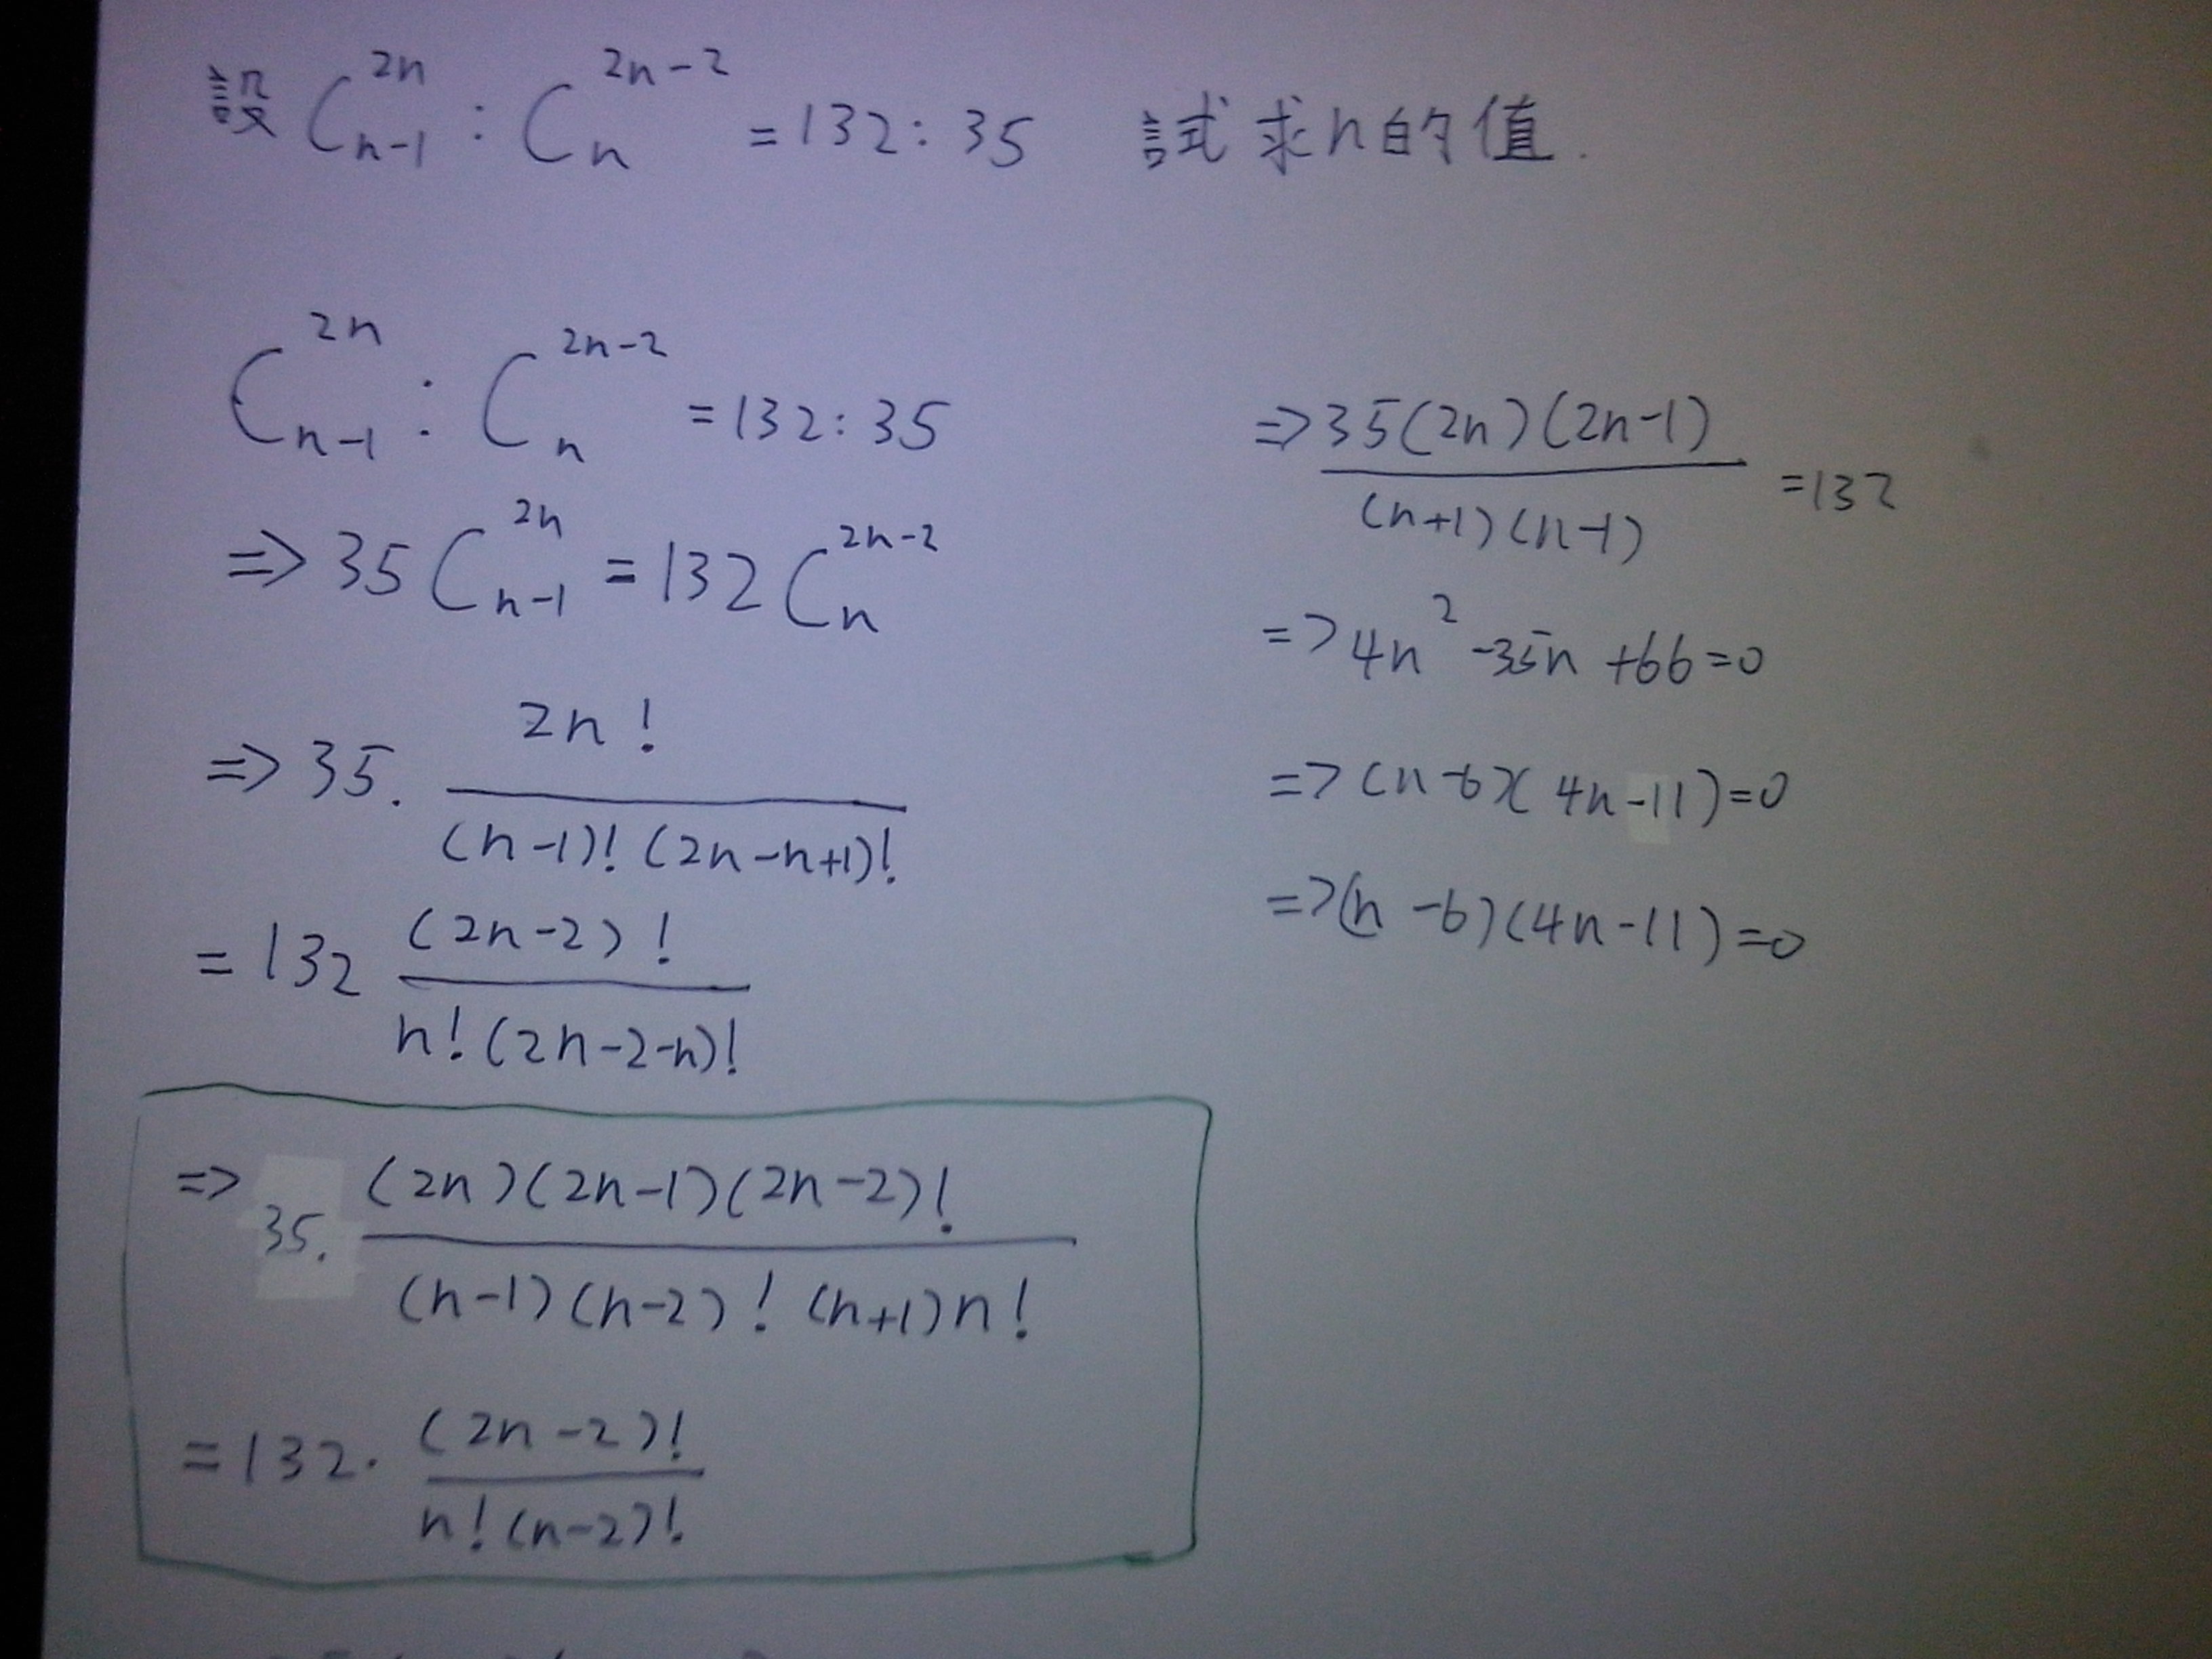 設 C^{2n}_{n-1} : C^{2n-2}_{n} = 132 : 35 試求n的值.
C^{2n}_{n-1} : C^{2n-2}_{n} = 132 : 35
=> 35 C^{2n}_{n-1} = 132 C^{2n-2}_{n}
=> 35. \frac{2n!}{(n-1)!(2n-n+1)!}
= 132 \frac{(2n-2)!}{n!(2n-2-n)!}
=> 35. \frac{(2n)(2n-1)(2n-2)!}{(n-1)(n-2)!(n+1)n!}
= 132 · \frac{(2n-2)!}{n!(n-2)!}
=> \frac{35(2n)(2n-1)}{(n+1)(n-1)} = 132
=> 4n^2 -35n +66=0
=> (n-6)(4n-11)=0
=> (n-6)(4n-11)=0